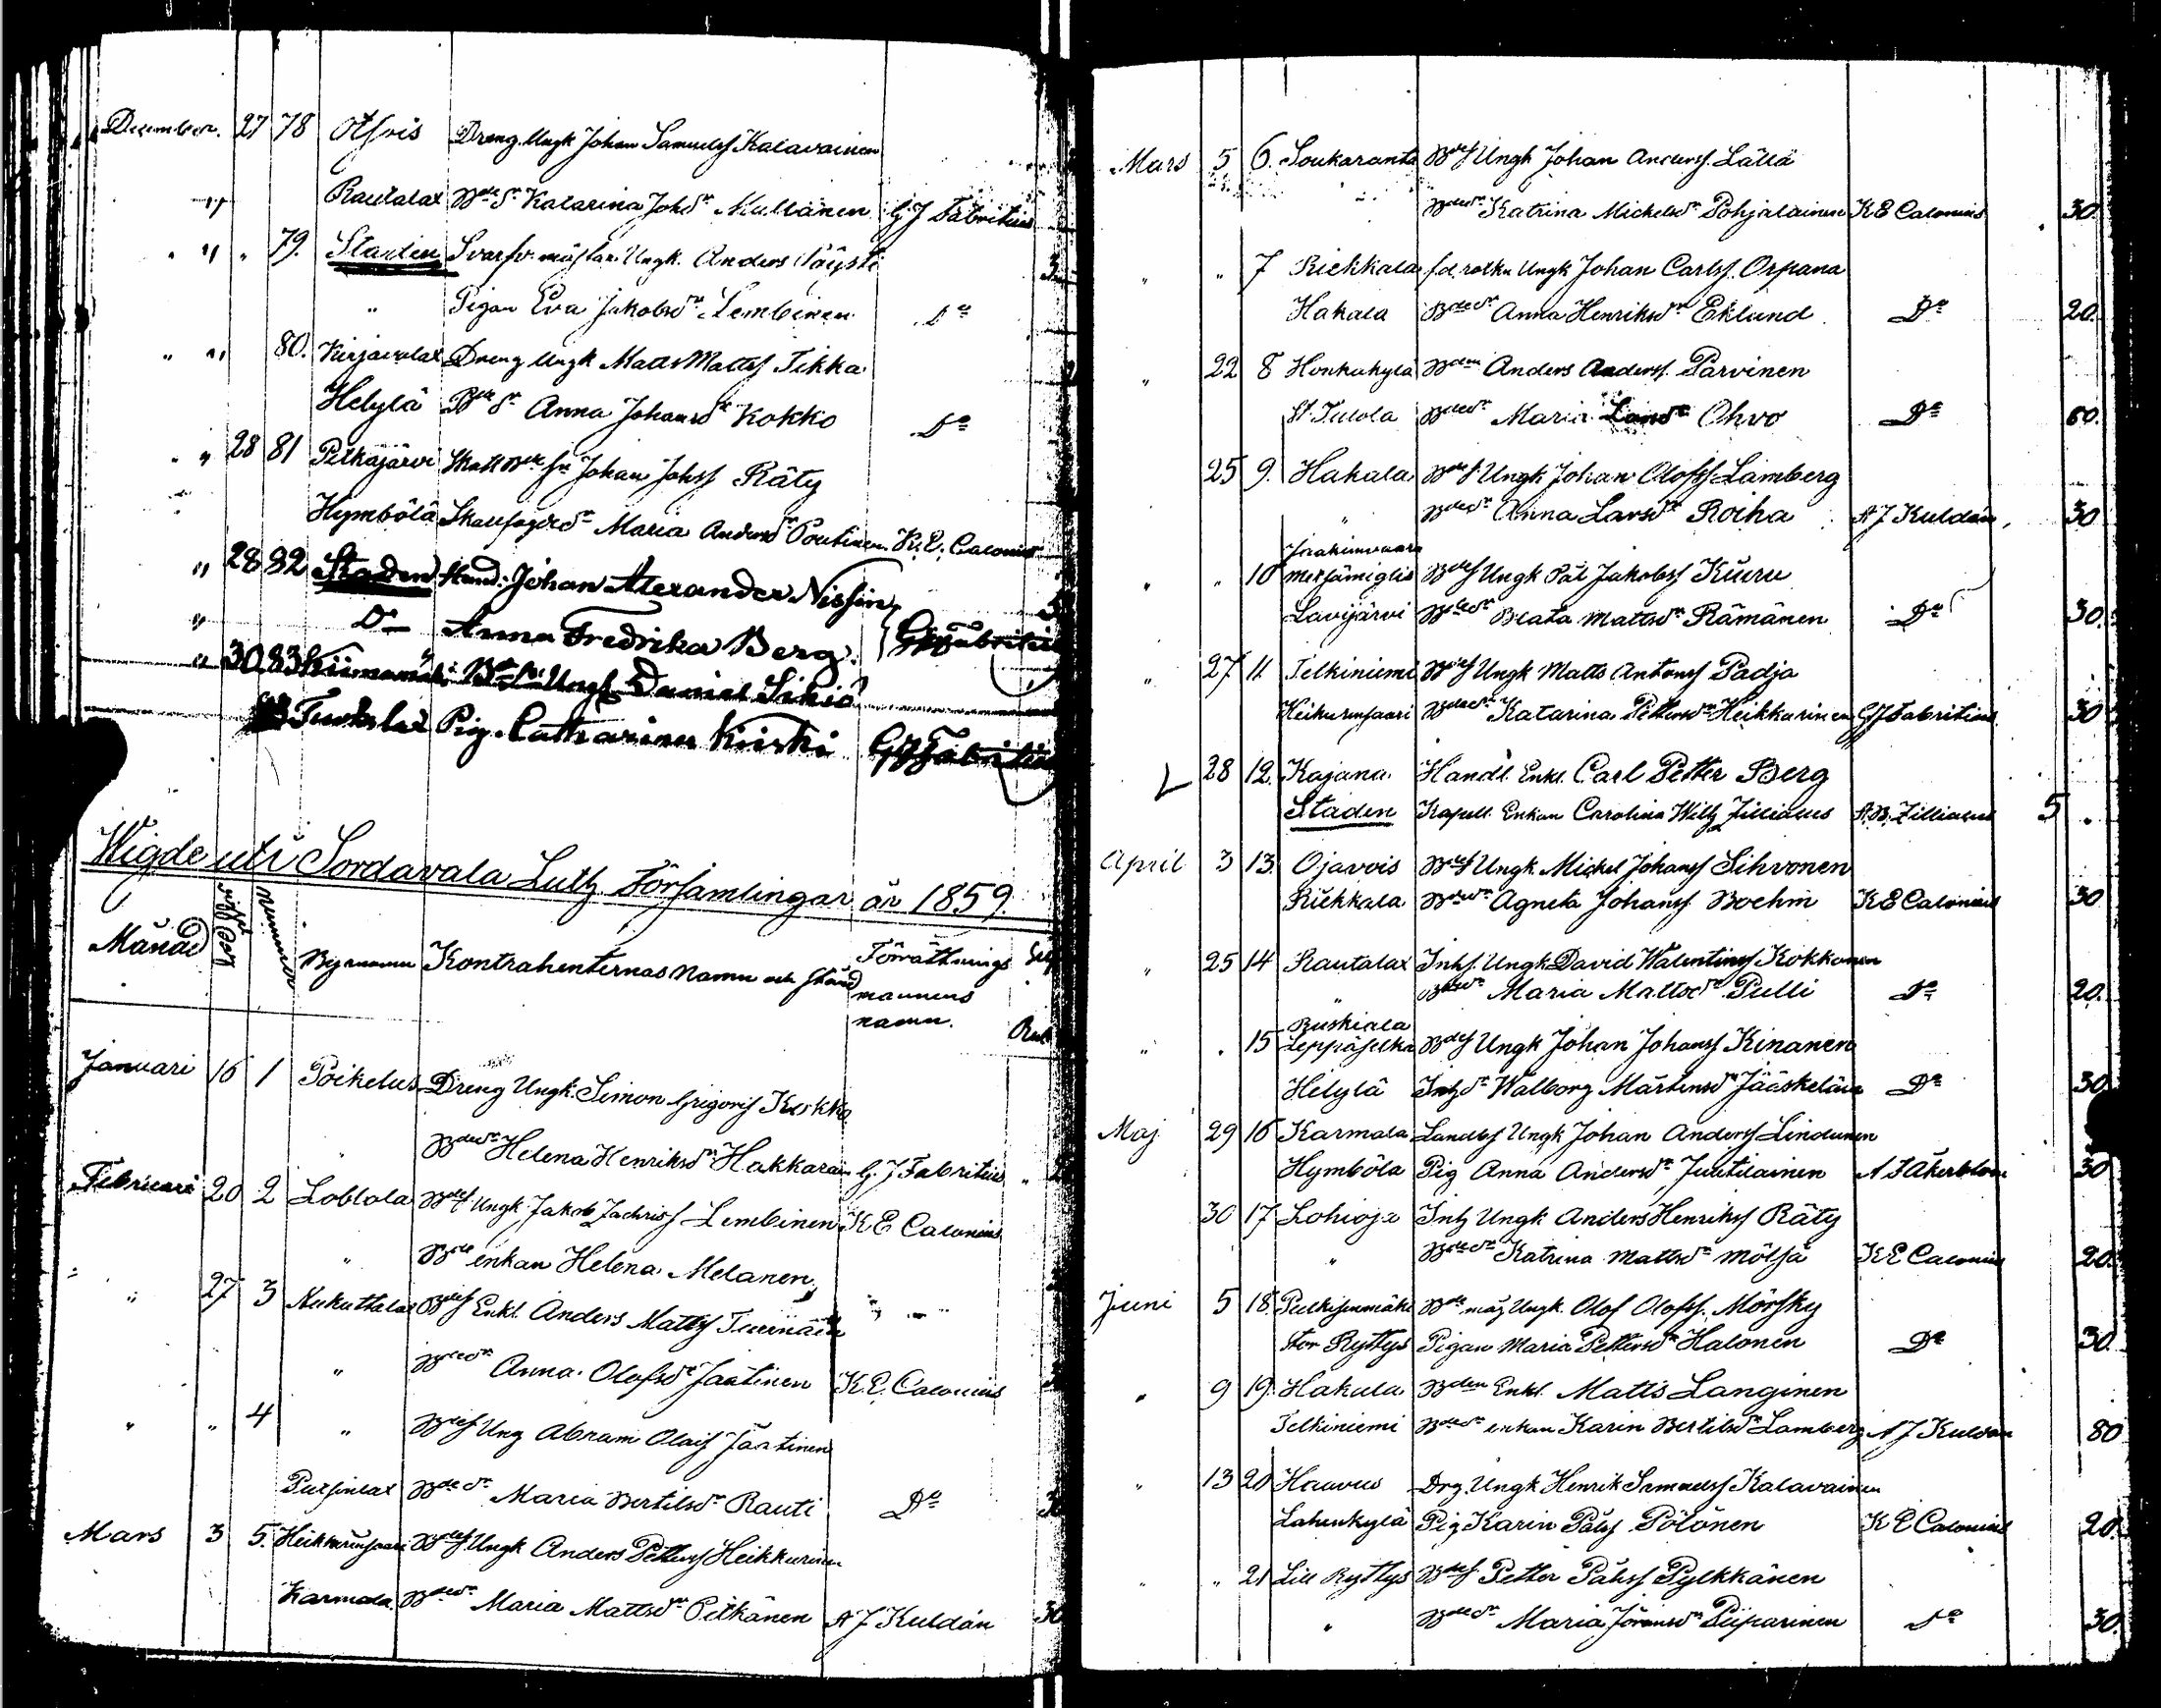 December. 27 78 Otsois Dreng. Ungk Johan Samuelsf Kalavainen
" Rautalax Bde dr Katarina Johdr Mullänen G J Fabritius
" " 79. Staden Svarfv. mästar. Ungk. Anders Pöysti 3
" Pigan Eva Jakobsdr Lembinen Do
" " 80. Kirjavalax Dreng Ungk Matts Mattsf Tikka
Helylä Bde dr Anna Johansdr Kokko Do
" 28 81 Pitkäjärvi Skatt Bde sn Johan Johsf Räty
Hymbölä Skattfogdedr Maria Andersdr Poutinen K. E. Calonius
" 28 82 Staden Hand: Johan Alexander Nissinen
" Do Anna Fredrika Berg. G J Fabritius
" 30 83 Ungk Daniel Sikiö
Tuokslax Pig. Catharina Kiiski G J Fabritius
Wigde uti Sordavala Luth. Församlingar år 1859.
Månad Nummer Byanamn Kontrahenternas Namn och Stånd Förrättnings
mannens
namn. Rub
Januari 16 1 Poikelus Dreng Ungk. Simon Grigorisf Kokko
" Bdedr Helena Henriksdr Hakkarain G. J Fabritius "
Februari 20 2 Loblola Bdesf Ungk Jakob Zachrisf Lembinen K E Calonius
" Bde enkan Helena Melanen
" 27 3 Kukuttalax Bdesf Enkl. Anders Mattsf " "
" Bdedr Anna Olofsdr Jäätinen K. E. Calonius
" " 4 " Bdesf Ung Abram Olaisf Jäätinen
Puisinlax Bde dr Maria Bertilsdr Rauti Do
Mars 3 5. Heikkurinsaari Bdesf Ungk Anders Pettersf Heikkurinen
Karmala Bdedr Maria Mattsdr Pitkänen A J Kuldán 30
Mars 5 6. Soukaranta Bdesf Ungk Johan Andersf. Lätti
Bdedr Katrina Mickelsdr Pohjalainen K E Calonius 30.
" " 7 Riekkala fd. rotkn Ungk Johan Carlsf. Orpana
Hakala Bdedr Anna Henriksdr Eklund Do 20.
" 22 8 Honkakylä Bden Anders Andersf. Parvinen
St. Tulola Bdedr Maria Larsdr Ohvo Do 60.
25 9. Hakala Bdesf Ungk Johan Olofsf Lamberg
" Bdedr Anna Larsdr Roiha A J Kuldán 30
Joakimvaara
" " 10 Bdesf Ungk Pål Jakobsf Kuuru
Lavijärvi Bdedr Beata Mattsdr Rämänen Do 30.
" 27 11 Telkiniemi Bdesf Ungk Matts Antonsf Padja
Heikurinsaari Bdedr Katarina Pettersdr Heikkurinen G J Fabritius 30
28 12. Kajana Handl. Enkl. Carl Petter Berg
Staden Kapell. Enkan Carolina Wilh Zilliacus A. B. Zilliacus 5 .
April 3 13. Ojavois Bdesf Ungk. Mickel Johansf Sihvonen
Riekkala Bdedr Agneta Johansf Boehm K E Calonius 30
" 25 14 Rautalax Inhs. Ungk David Walentinsf Kokkonen
" Bdedr Maria Mattsdr Pulli Do 20.
Ruskiala
" . 15 Leppäselkä Bdesf Ungk Johan Johansf Kinanen
Helylä Inhdr Walborg Mårtensdr Jääskeläin Do 30
Maj 29 16 Karmala Landbsf Ungk Johan Andersf Lindunen
Hymböla Pig Anna Andersdr Juutilainen A F Åkerblom 30
30 17 Lohioja Inh Ungk Anders Henriksf Räty
" Bdedr Katrina Mattsdr Mölsä K E Calonius 20.
Juni 5 18. Pulkisenmäki Bde måg Ungk. Olof Olofsf. Mörsky
Stor Ryttys Pigan Maria Pettersdr Halonen Do 30.
" 9 19. Hakala Bden Enkl. Matts Langinen
Telkiniemi Bdedr enkan Karin Bertilsdr Lamberg A J Kuldán 80
" 13 20 Haavus Drg. Ungk Henrik Samuelsf Kalavainen
Lahenkylä Pig Karin Pålsf Pölönen K E Calonius 20.
" " 21 Lill Ryttys Bdesf Petter Pålsf Pylkkänen
" Bdedr Maria Jöransdr Piiparinen Do 30.